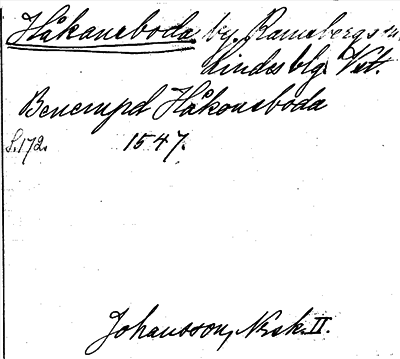 Håkaneboda by, Ramsbergs
Lindesblg. Vstt.
Benempd Håkoneboda
S.172. 1547.
Johansson, Nsk. II.